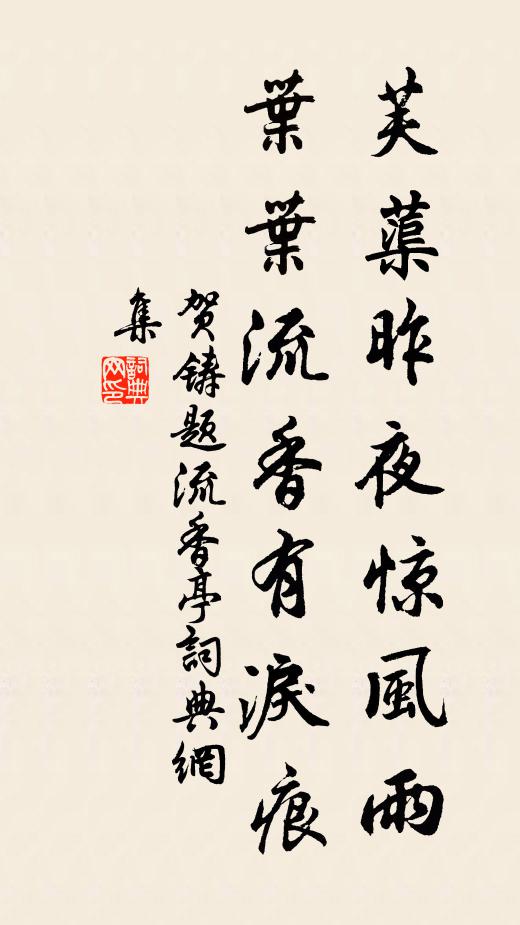 芙蕖昨夜惊風雨
葉葉流香有淚痕
贺鑄题流香亭詞典網
集
詞典
网印